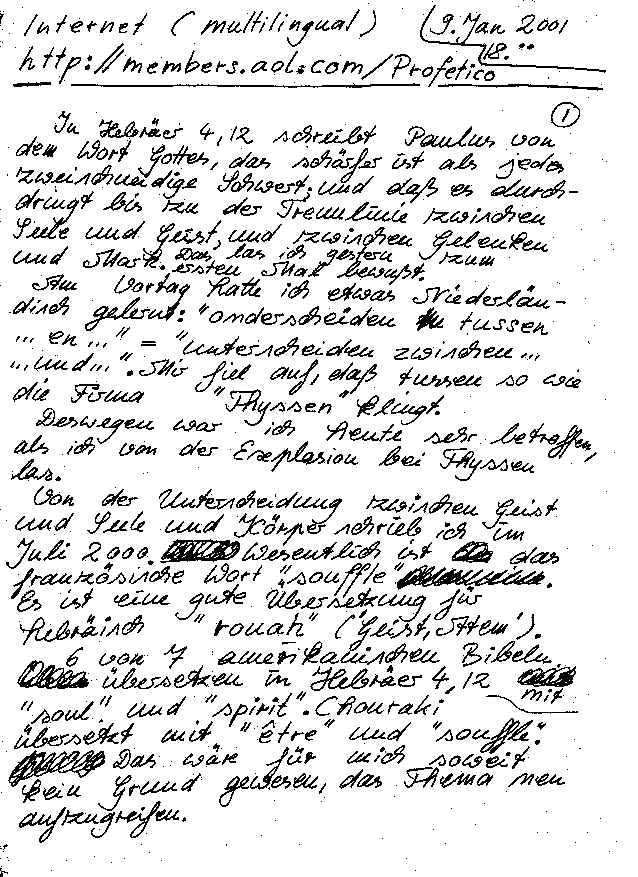 Internet (multilingual) 9. Jan 2001
18.°°
http://members.aol.com/Profetico
1
In Hebräer 4,12 schreibt Paulus von
dem Wort Gottes, das schärfer ist als jedes
zweischneidige Schwert; und daß es durch-
dringt bis zu der Trennlinie zwischen
Seele und Geist, und zwischen Gelenken
und Mark. Das las ich gestern zum
ersten Mal bewußt.
Am Vortag hatte ich etwas Niederlän-
disch gelernt: "onderscheiden tussen
... en ..." = "unterscheiden zwischen ...
... und ...". Mir fiel auf, daß tussen so wie
die Firma "Thyssen" klingt.
Deswegen war ich heute sehr betroffen,
als ich von der Explosion bei Thyssen
las.
Von der Unterscheidung zwischen Geist
und Seele und Körper schrieb ich im
Juli 2000. Wesentlich ist das
französische Wort "souffle".
Es ist eine gute Übersetzung für
hebräisch "rouah" ('Geist, Atem').
6 von 7 amerikanischen Bibeln
übersetzen in Hebräer 4,12 mit
"soul" und "spirit". Chouraki
übersetzt mit "être" und "souffle".
Das wäre für mich soweit
kein Grund gewesen, das Thema neu
aufzugreifen.